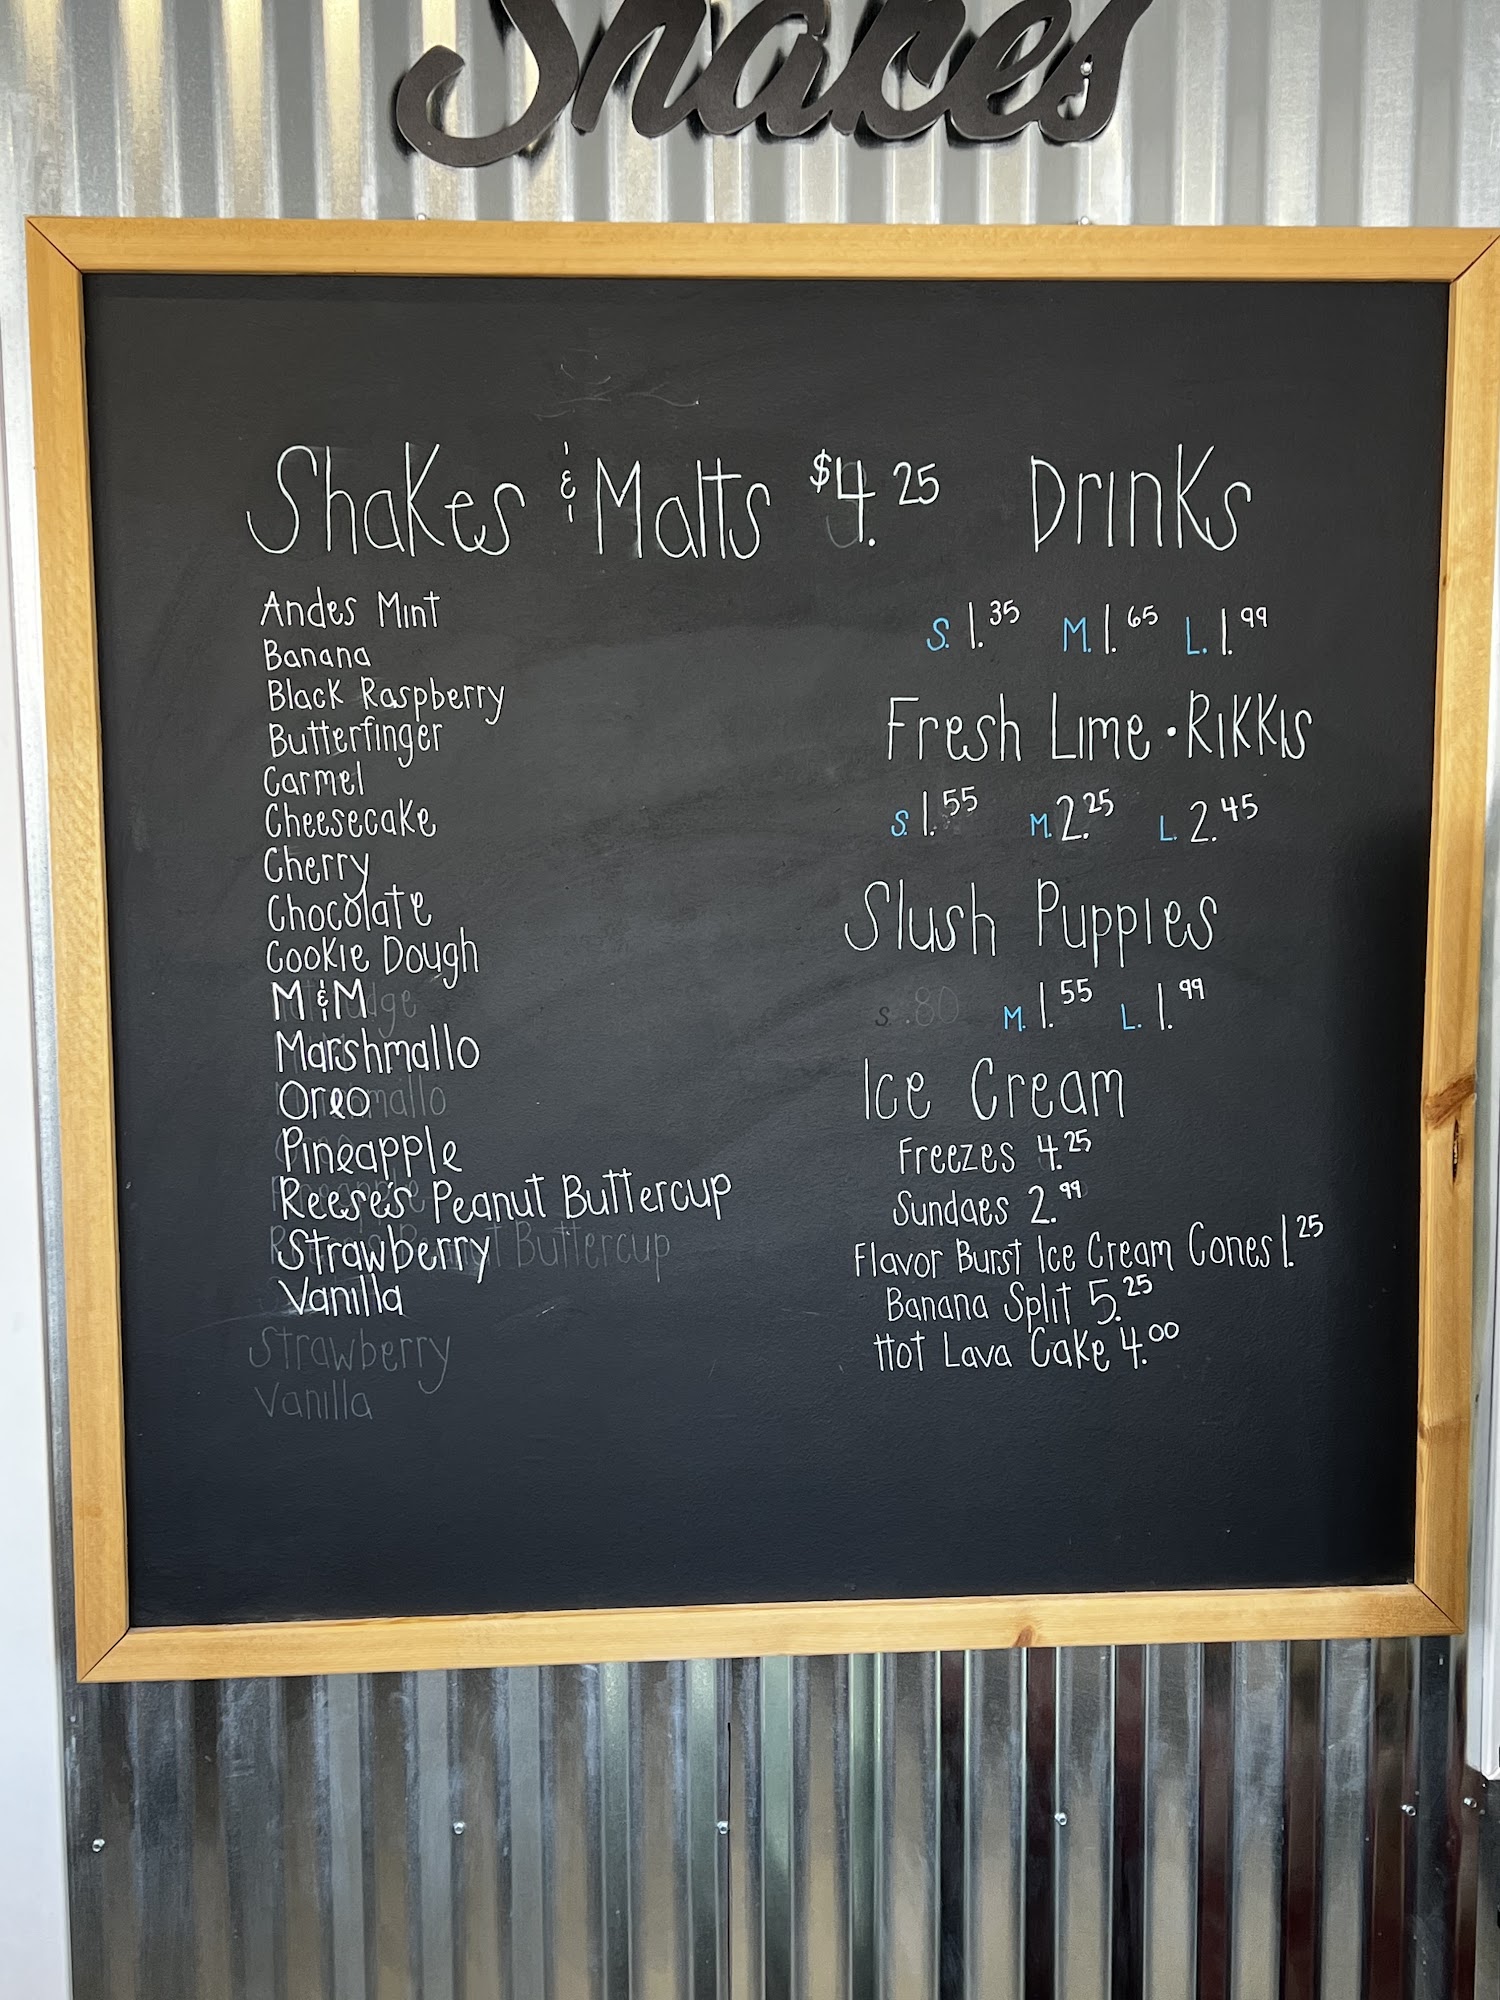 Shakes
Shakes & Malts $4.25
Andes Mint
Banana
Black Raspberry
Butterfinger
Carmel
Cheesecake
Cherry
Chocolate
Cookie Dough
M&M
Marshmallo
Oreo
Pineapple
Reese's Peanut Buttercup
Strawberry
Vanilla
Strawberry
Vanilla
Drinks
S. 1.35 M. 1.65 L. 1.99
Fresh Lime • Rikkis
S. 1.55 M. 2.25 L. 2.45
Slush Puppies
S .80 M. 1.55 L. 1.99
Ice Cream
Freezes 4.25
Sundaes 2.99
Flavor Burst Ice Cream Cones 1.25
Banana Split 5.25
Hot Lava Cake 4.00